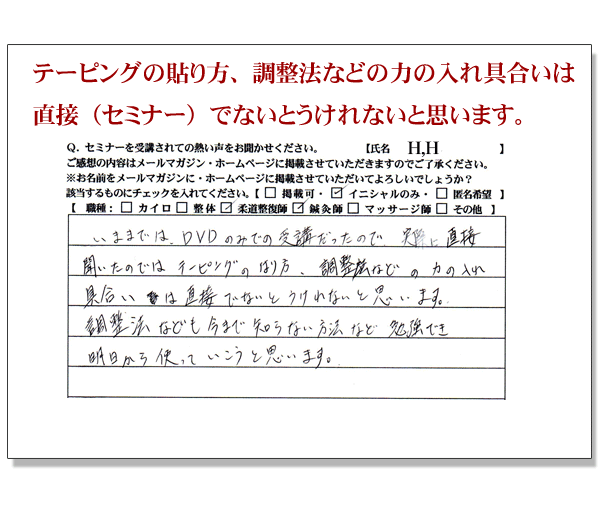 テーピングの貼り方、調整法などの力の入れ具合いは
直接（セミナー）でないとうけれないと思います。
Q. セミナーを受講されての熱い声をお聞かせください。 【氏名 H,H 】
ご感想の内容はメールマガジン・ホームページに掲載させていただきますのでご了承ください。
※お名前をメールマガジンに・ホームページに掲載させていただいてよろしいでしょうか？
該当するものにチェックを入れてください。【 □ 掲載可・ ☑ イニシャルのみ・ □ 匿名希望 】
【 職種： □ カイロ □ 整体 ☑ 柔道整復師 ☑ 鍼灸師 □ マッサージ師 □ その他 】
いままでは、DVDのみでの受講だったので、実際に直接
聞いたのでは テーピングのはり方、調整法などの力の入れ
具合いは直接でないとうけれないと思います。
調整法なども今まで知らない方法など勉強でき
明日から使っていこうと思います。